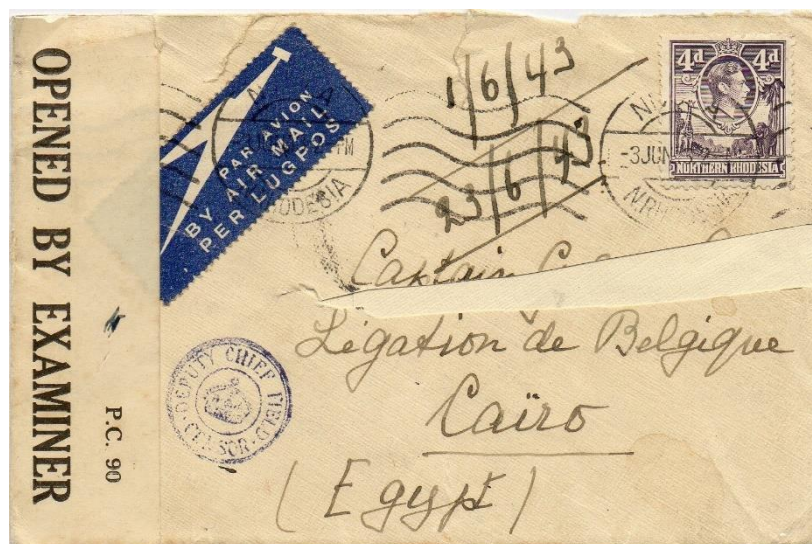 OPENED BY EXAMINER
P.C. 90
PAR AVION
BY AIR MAIL
PER LUGPOS
1/6/43
23/6/43
4d 4d
NORTHERN RHODESIA
-3JUN
RHODESIA
Captain
Légation de Belgique
Caïro
(Egypt)
DEPUTY CHIEF FIELD
CENSOR